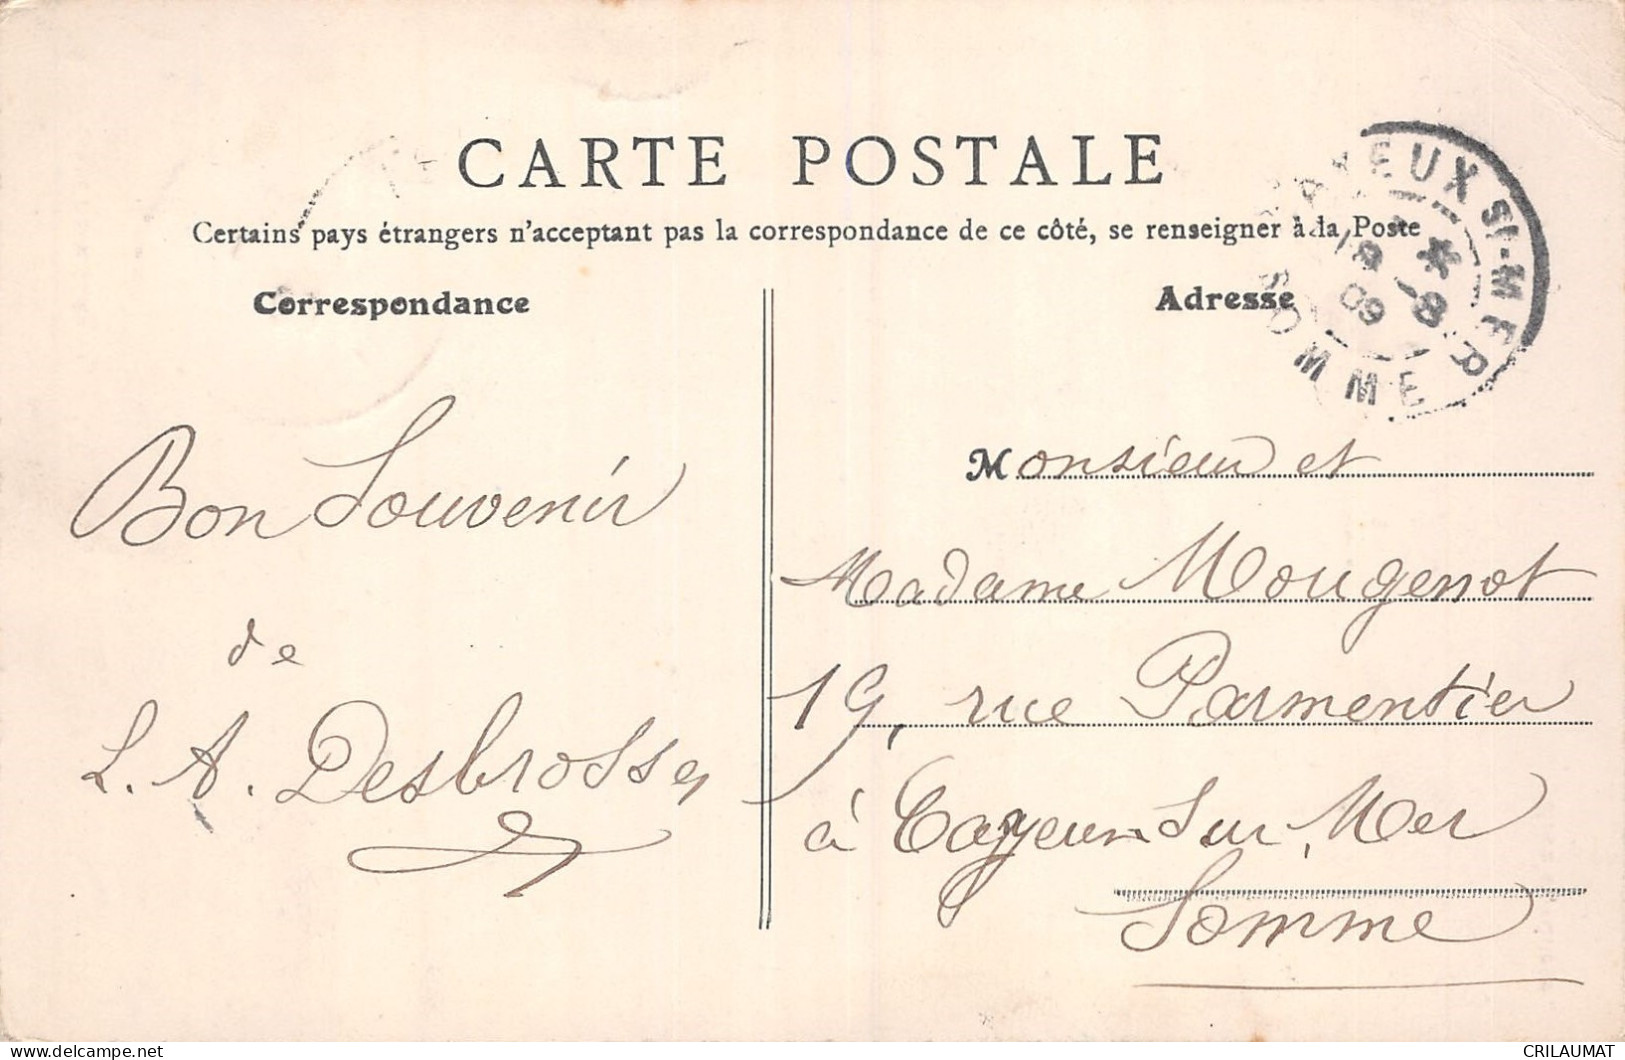 CARTE POSTALE
Certains pays étrangers n'acceptent pas la correspondance de ce côté, se renseigner à la Poste
Correspondance
Adresse
CAYEUX S^T-MER
18 -8
09
SOMME
Bon Souvenir
de
L. A. Desbrosses
Monsieur et
Madame Mougenot
19, rue Parmentier
à Cayeux sur Mer
Somme
CRILAUMAT